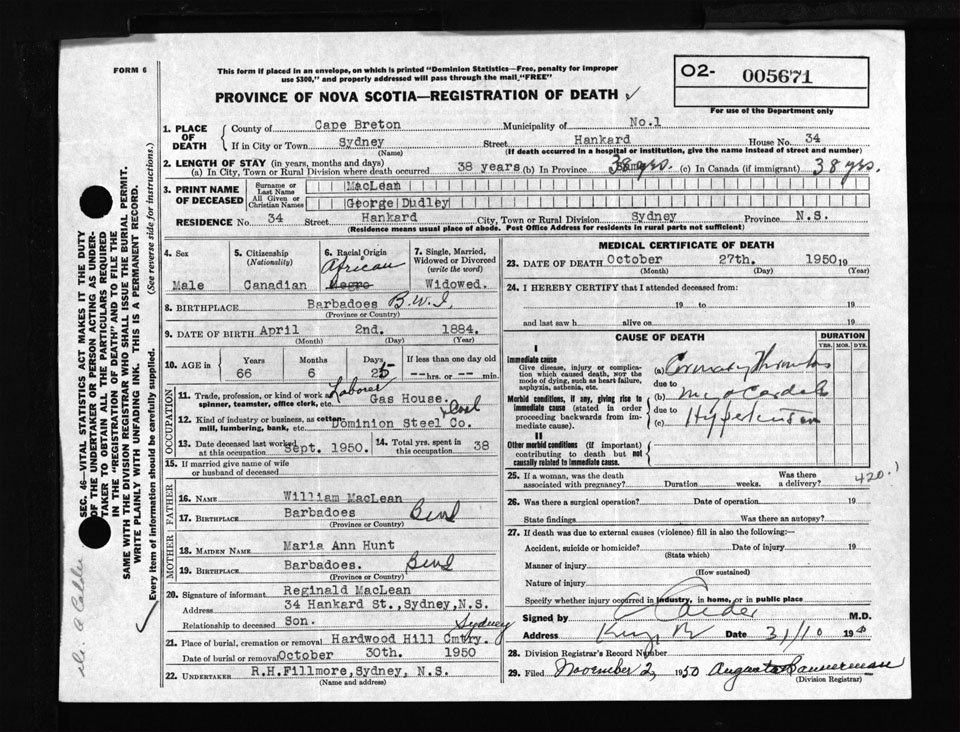 FORM 6
This form if placed in an envelope, on which is printed "Dominion Statistics—Free, penalty for improper
use $300," and properly addressed will pass through the mail "FREE"
O2- 005671
For use of the Department only
PROVINCE OF NOVA SCOTIA—REGISTRATION OF DEATH
1. PLACE OF DEATH
County of Cape Breton Municipality of No.1
If in City or Town Sydney Street Hankard House No. 34
(Name) (If death occurred in a hospital or institution, give the name instead of street and number)
2. LENGTH OF STAY (in years, months and days)
(a) In City, Town or Rural Division where death occurred 38 years (b) In Province 38 yrs. (c) In Canada (if immigrant) 38 yrs.
3. PRINT NAME OF DECEASED
Surname or Last Name MacLean
All Given or Christian Names George Dudley
RESIDENCE No. 34 Street Hankard City, Town or Rural Division Sydney Province N.S.
(Residence means usual place of abode. Post Office Address for residents in rural parts not sufficient)
4. Sex Male
5. Citizenship (Nationality) Canadian
6. Racial Origin African Negro
7. Single, Married, Widowed or Divorced (write the word) Widowed.
8. BIRTHPLACE Barbadoes B.W.I.
(Province or Country)
9. DATE OF BIRTH April 2nd. 1884.
(Month) (Day) (Year)
10. AGE in Years 66 Months 6 Days 25 If less than one day old --hrs. or --min.
OCCUPATION
11. Trade, profession, or kind of work as spinner, teamster, office clerk, etc. Laborer Gas House.
12. Kind of industry or business, as cotton-mill, lumbering, bank, etc. Dominion Steel & Coal Co.
13. Date deceased last worked at this occupation Sept. 1950. 14. Total yrs. spent in this occupation 38
15. If married give name of wife or husband of deceased
FATHER
16. NAME William MacLean
17. BIRTHPLACE Barbadoes
(Province or Country)
MOTHER
18. MAIDEN NAME Maria Ann Hunt
19. BIRTHPLACE Barbadoes.
(Province or Country)
20. Signature of informant Reginald MacLean
Address 34 Hankard St.,Sydney,N.S.
Relationship to deceased Son.
21. Place of burial, cremation or removal Hardwood Hill Cmtry. Sydney
Date of burial or removal October 30th. 1950
22. UNDERTAKER R.H.Fillmore,Sydney, N.S.
(Name and address)
MEDICAL CERTIFICATE OF DEATH
23. DATE OF DEATH October 27th. 1950 19
(Month) (Day) (Year)
24. I HEREBY CERTIFY that I attended deceased from:
19 to 19
and last saw h alive on 19
CAUSE OF DEATH
DURATION
YRS. MOS. DYS.
I
Immediate cause
Give disease, injury or complication which caused death, not the mode of dying, such as heart failure, asphyxia, asthenia, etc.
(a) Coronary Thrombosis
due to
Morbid conditions, if any, giving rise to immediate cause (stated in order proceeding backwards from immediate cause).
(b) Myocarditis
due to
(c) Hypertension
II
Other morbid conditions (if important) contributing to death but not causally related to immediate cause.
25. If a woman, was the death associated with pregnancy? Duration weeks. Was there a delivery? 420.1
26. Was there a surgical operation? Date of operation 19
State findings Was there an autopsy?
27. If death was due to external causes (violence) fill in also the following:
Accident, suicide or homicide? Date of injury 19
(State which)
Manner of injury
(How sustained)
Nature of injury
Specify whether injury occurred in industry, in home, or in public place
Signed by Calder M.D.
Address Date 31/10 19
28. Division Registrar's Record Number
29. Filed November 2, 1950 Augusta Bannerman
(Division Registrar)
SEC. 46—VITAL STATISTICS ACT MAKES IT THE DUTY
OF THE UNDERTAKER OR PERSON ACTING AS UNDER-
TAKER TO OBTAIN ALL THE PARTICULARS REQUIRED
IN THE "REGISTRATION OF DEATH" AND TO FILE THE
SAME WITH THE DIVISION REGISTRAR WHO SHALL ISSUE THE BURIAL PERMIT.
WRITE PLAINLY WITH UNFADING INK. THIS IS A PERMANENT RECORD.
Every item of information should be carefully supplied. (See reverse side for instructions.)
Dr. A Calder